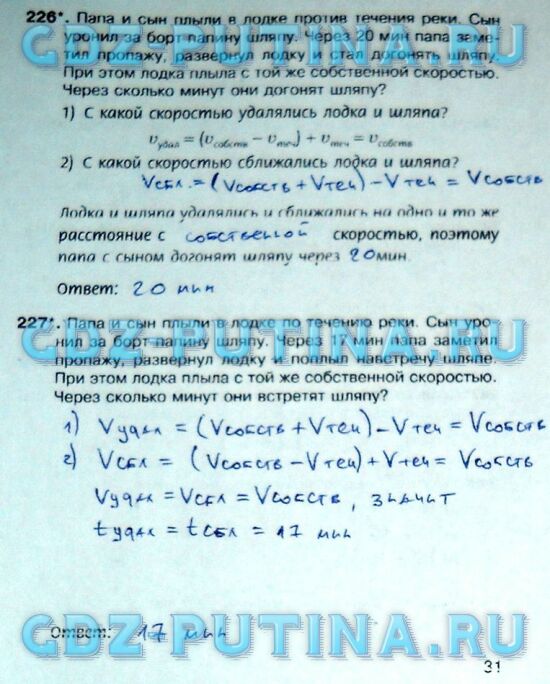 226*. Папа и сын плыли в лодке против течения реки. Сын
уронил за борт папину шляпу. Через 20 мин папа заме-
тил пропажу, развернул лодку и стал догонять шляпу.
При этом лодка плыла с той же собственной скоростью.
Через сколько минут они догонят шляпу?
1) С какой скоростью удалялись лодка и шляпа?
vудал = (vсобств − vтеч) + vтеч = vсобств
2) С какой скоростью сближались лодка и шляпа?
Vсбл. = (Vсобств + Vтеч) − Vтеч = Vсобств
Лодка и шляпа удалялись и сближались на одно и то же
расстояние с собственной скоростью, поэтому
папа с сыном догонят шляпу через 20 мин.
Ответ: 20 мин
227*. Папа и сын плыли в лодке по течению реки. Сын уро-
нил за борт папину шляпу. Через 17 мин папа заметил
пропажу, развернул лодку и поплыл навстречу шляпе.
При этом лодка плыла с той же собственной скоростью.
Через сколько минут они встретят шляпу?
1) Vудал = (Vсобств + Vтеч) − Vтеч = Vсобств
2) Vсбл = (Vсобств − Vтеч) + Vтеч = Vсобств
Vудал = Vсбл = Vсобств, значит
tудал = tсбл = 17 мин
Ответ: 17 мин
31
GDZ-PUTINA.RU
GDZ-PUTINA.RU
GDZ-PUTINA.RU
GDZ-PUTINA.RU